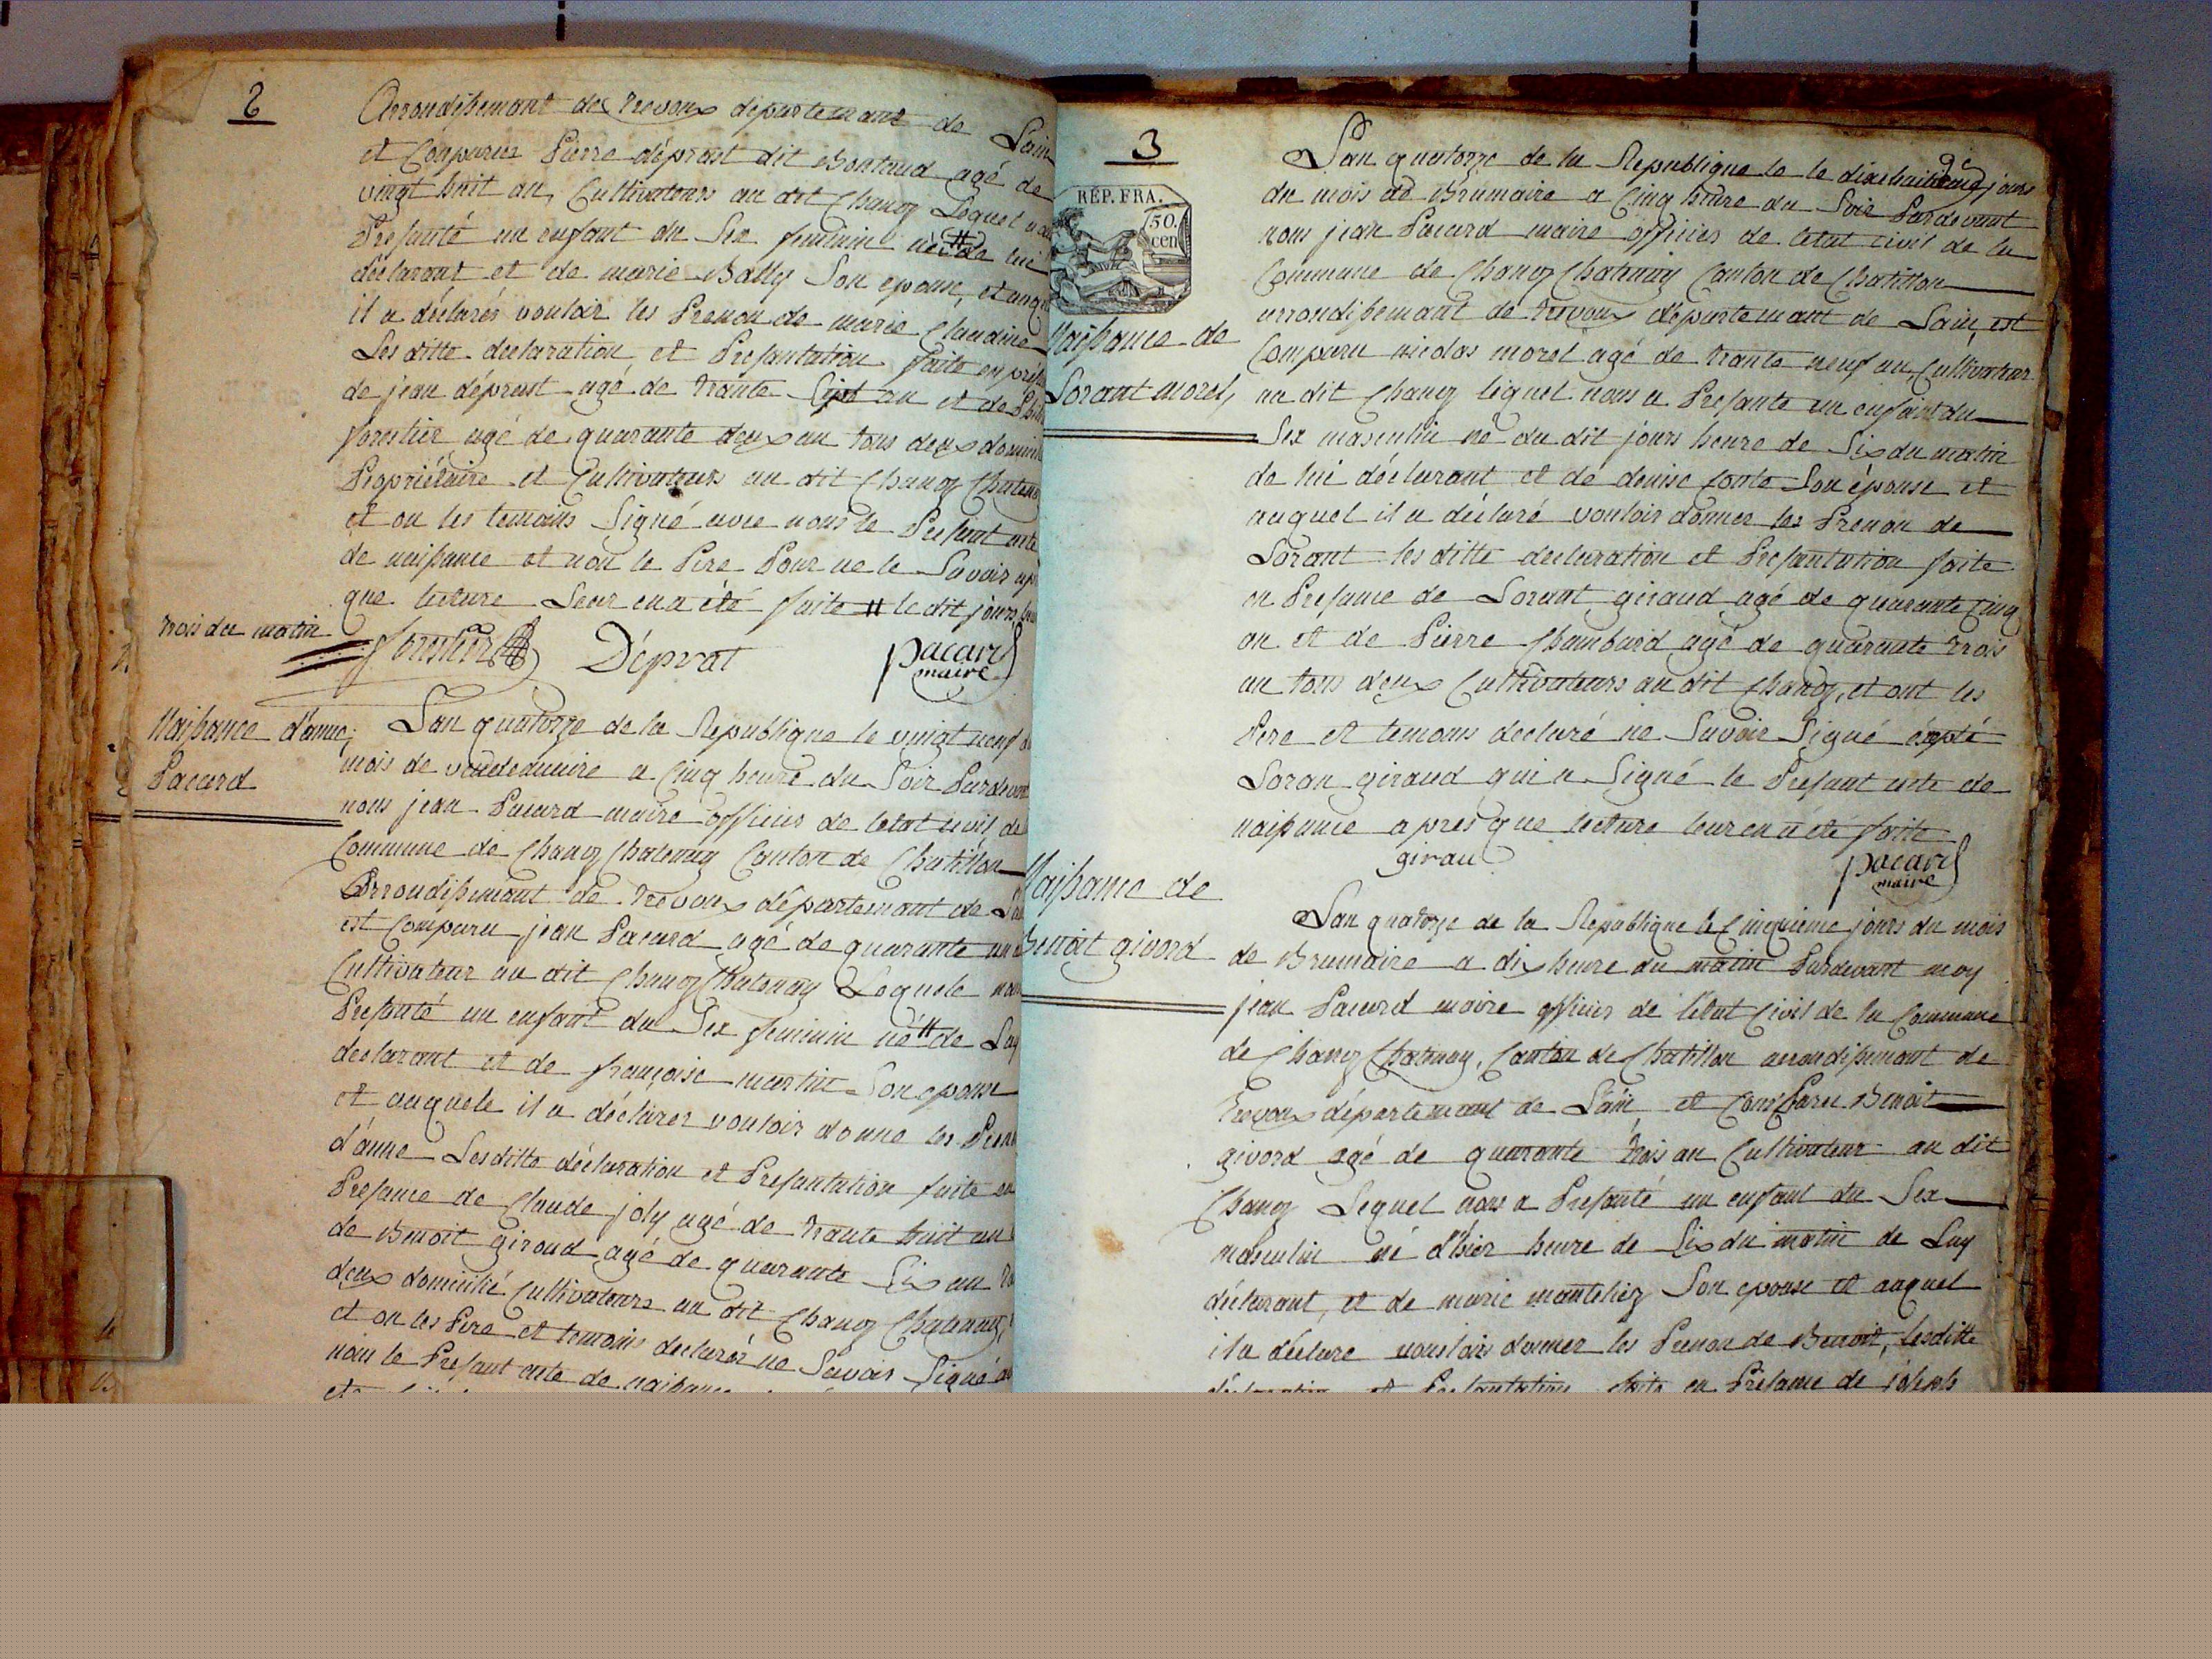 2
Arrondissemant de Trevoux departemant de Lain
et Comparus Pierre déprost dit Bontaud agé de
vingt huit an, Cultivateurs au dit Chanoz Lequel nous
Presanté un enfant du Sex feminin né # de lui
déclarant et de marie Bally Son epouse, et auquel
il a déclarés vouloir les Prenon de marie Claudine
Les ditte declaration et Presantation faite en
de jean déprost agé de trante Sept an et de
forestier agé de quarante deux an tous deux
Propriétaire et Cultivateurs au dit Chanoz
et on les temoins Signé avec nous le Presant acte
de naissance et non le Pere Pour ne le Savoir
que lecture Leur en a été faite # le dit jours
trois du matin
forestier Déprat pacard
maire
Naissance d'anne
Pacard
Lan quatorze de la Republique le vingt neuf
mois de vendemiaire a Cinq heure du Soir Pardevant
nous jean Pacard maire officies de letat civil de
Commune de Chanoz Chatenay Canton de Chatillon
Arrondissemant de trevoux départemant de
est Comparu jean Pacard agé de quarante un
Cultivateur au dit Chanoz Chatenay Lequele nous
Presanté un enfant du Sex feminin né # de Luy
declarant et de françoise martin Son epouse
et auquele il a déclarer vouloir donne les
d'anne Les ditte déclaration et Presantation faite en
Presance de Claude joly agé de trante huit an
de Benoit giroud agé de quarante Six an
deux domicilié Cultivateurs au dit Chanoz Chatenay
et on les Pere et temoins declarér ne Savoir Signé
nous le Presant acte de naissance
3
RÉP. FRA.
50.
cen
Naissance de
Lorant morel,
Lan quatorze de la Republique le le dixehuit jours
du mois de Brumaire a Cinq heure du Soir Pardevant
nous jean Pacard maire officies de letat civil de la
Commune de Chanoz Chatenay Canton de Chatillon
arrondissemant de trevoux départemant de Lain, est
Comparu nicolas morel agé de trante neuf an Cultivateur
au dit Chanoz lequel nous a Presante un enfant du
Sex masculin né du dit jours heure de Six du matin
de lui déclarant et de denise Conte Son épouse et
auquel il a déclaré vouloir donner les Prenon de
Lorant les ditte declaration et Presantation faite
en Presance de Lorant giraud agé de quarante Cinq
an et de Pierre Chambard agé de quarante trois
an tous deux Cultivateurs au dit Chanoz, et ont les
Pere et temoins declaré ne Savoir Signé
Loran giraud qui a Signé le Presant acte de
naissance apres que lecture leur en a été faite
girau pacard
maire
Naissance de
Benoit givord
Lan quatorze de la Republique le Cinquieme jours du mois
de Brumaire a dix heure du matin Pardevant moy
jean Pacard maire officies de létat Civil de la Commune
de Chanoz Chatenay, Canton de Chatillon arrondissemant de
Trevoux départemant de Lain et Comparu Benoit
givord agé de quarante trois an Cultivateur au dit
Chanoz Lequel nous a Presanté un enfant du Sex
masculin né d'hier heure de Six du matin de Luy
déclarant, et de marie manteliez Son epouse et auquel
il a déclare vouloir donner les Prenon de Benoit, lesditte
déclaration et Presantation faite en Presance de joseph